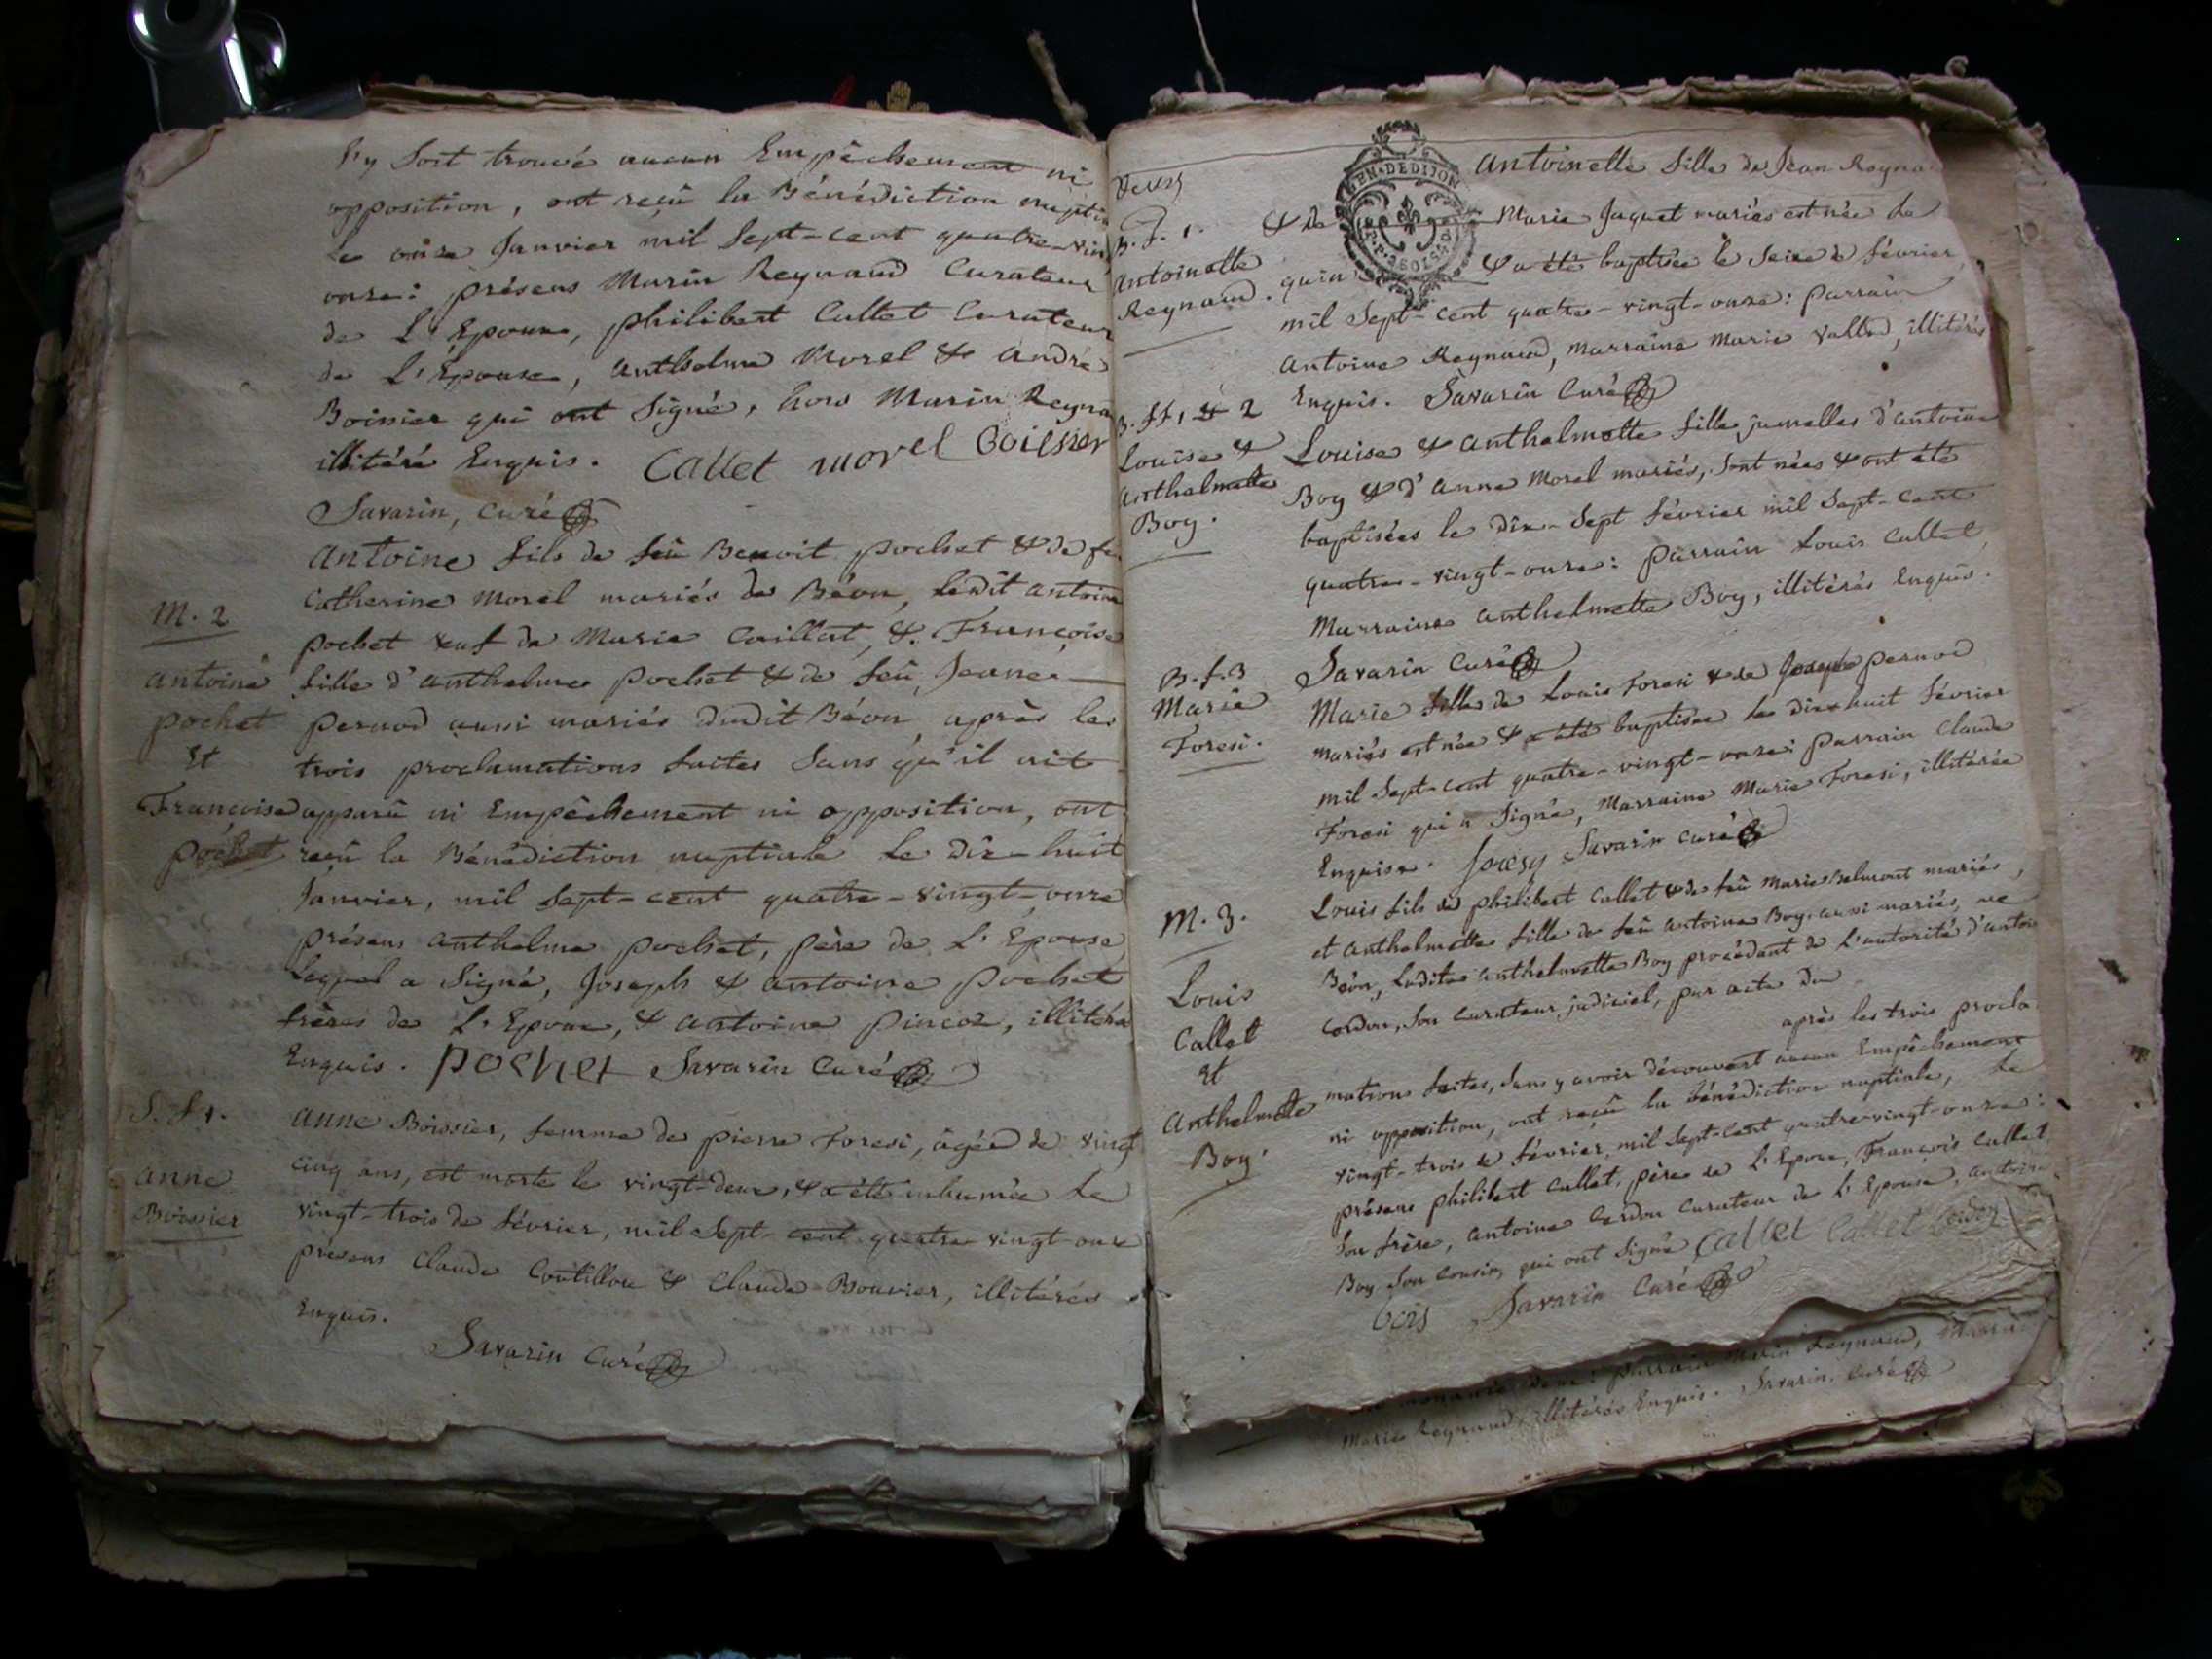 s'y soit trouvé aucun Empêchement ni
opposition, ont reçû la Bénédiction nuptia
le onze Janvier mil sept-cent quatre-vin
onze: présens Marin Reynaud Curateur
de L'Epoux, philibert Callet Curateur
de L'Épouse, anthelme Morel & andré
Boissier qui ont signé, hors Marin Reyna
illitéré Enquis. Callet morel Boissier
Savarin, Curé
M. 2
antoine
pochet
Et
Françoise
pochet
antoine fils de feû Benoit pochet & de fe
Catherine Morel mariés de Béon, ledit antoine
pochet veuf de Marie Caillat, &. Françoise
fille d'anthelme pochet & de feû Jeanne
pernod aussi mariés dudit Béon, après les
trois proclamations faites sans qu'il ait
apparû ni Empêchement ni opposition, ont
reçû la Bénédiction nuptiale le dix-huit
Janvier, mil sept-cent quatre-vingt-onze
présens anthelme pochet, père de L'Epouse
lequel a signé, Joseph & antoine pochet
frères de L'Epoux, & antoine pincoz, illitéré
Enquis. pochet Savarin Curé
S. f 1.
anne
Boissier
anne Boissier, femme de pierre Foresi, âgée de vingt
cinq ans, est morte le vingt-deux, & a été inhumée le
vingt-trois de février, mil sept-cent quatre vingt-onze
présens Claude Coutillou & Claude Bouvier, illitérés
Enquis.
Savarin Curé
deux
GEN. DE DIJON
B. f. 1.
antoinette
Reynaud.
antoinette fille de Jean Reyna
& de Marie Jaquet mariés est née le
quin & a été baptisée le Seize de février
mil sept-cent quatre-vingt-onze: parrain
antoine Reynaud, marraine Marie Vallod, illitérés
Enquis. Savarin Curé
B. ff 1 & 2
Louise &
anthelmette
Boy.
Louise & anthelmette filles jumelles d'antoine
Boy & d'anne Morel mariés, sont nées & ont été
baptisées le dix-sept février mil sept-cent
quatre-vingt-onze: parrain Louis Callet,
Marraine anthelmette Boy, illitérés Enquis.
Savarin Curé
B. f. 3
Marie
Foresi.
Marie fille de Louis Foresi & de Josephe pernod
mariés est née & a été baptisée le dix-huit février
mil sept-cent quatre-vingt-onze: parrain Claude
Foresi qui a signé, Marraine Marie Foresi, illitérée
Enquise. Savarin curé
M. 3.
Louis
Callet
Et
Anthelmette
Boy.
Louis fils de philibert Callet & de feû Marie Belmont mariés,
et anthelmette fille de feû antoine Boy aussi mariés, de
Béon, Ladite anthelmette Boy procédant de l'autorité d'antoi
Cerdon, son Curateur judiciel, par acte du
après les trois procla
mations faites, sans y avoir découvert aucun Empêchement
ni opposition, ont reçû la bénédiction nuptiale, le
vingt-trois de février, mil sept-cent quatre vingt-onze:
présens philibert Callet, père de L'Epoux, François Callet
son frère, antoine Cerdon Curateur de L'Epouse, antoine
Boy son Cousin, qui ont signé Callet Callet Cerdon
Savarin Curé
parrain Marin Reynaud,
Marie Reynaud, illitérés Enquis. Savarin, Curé